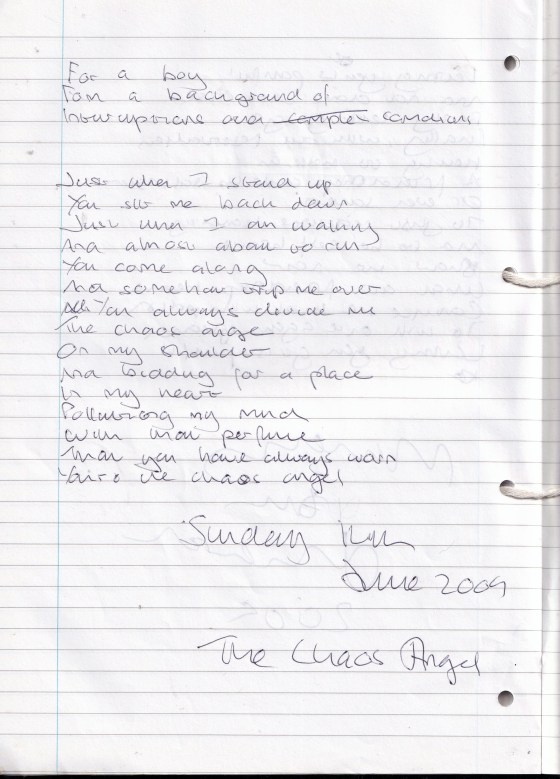 For a boy
From a background of
Interruptions and complex conditions
Just when I stand up
You sit me back down
Just when I am walking
And almost about to run
You come along
And somehow trip me over
You always divide me
The chaos angel
On my shoulder
And bidding for a place
In my heart
Polluting my mind
With that perfume
That you have always worn
You're the chaos angel
Sunday
June 2009
The Chaos Angel